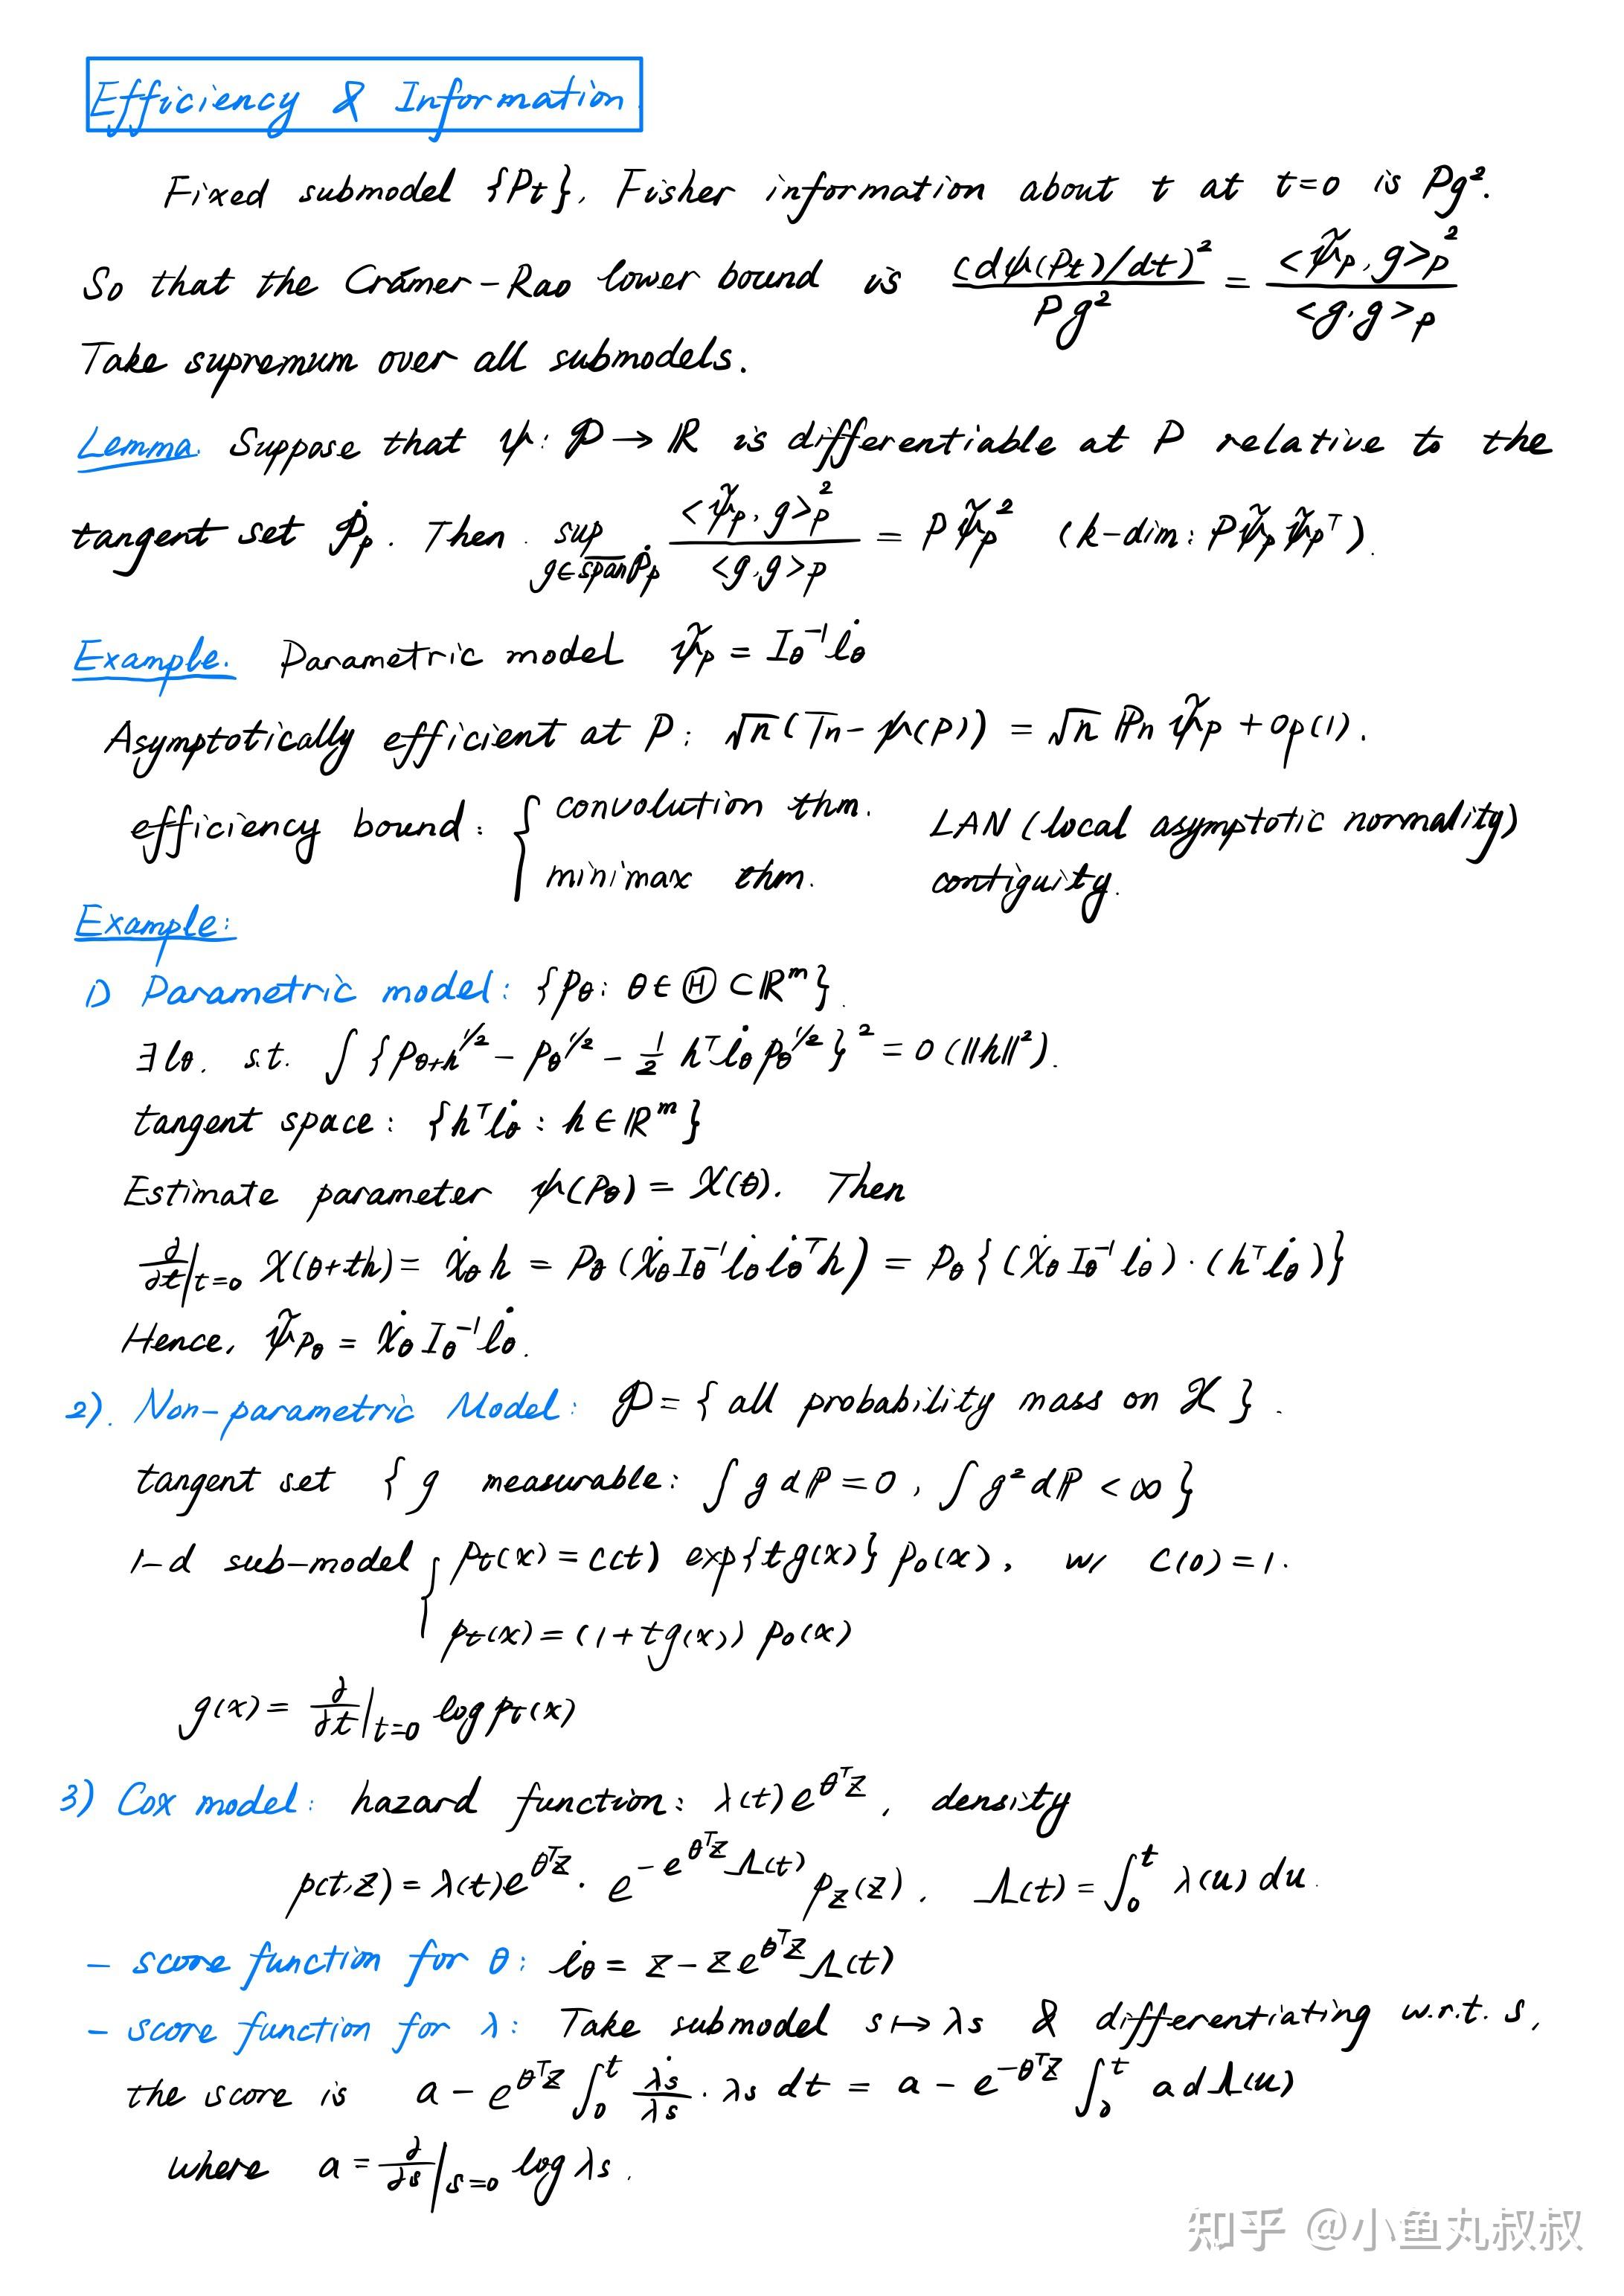 Efficiency & Information.
Fixed submodel {Pt}, Fisher information about t at t=0 is Pg².
So that the Crámer-Rao lower bound is (dψ(Pt)/dt)² / Pg² = <ψ̃_P, g>_P² / <g,g>_P
Take supremum over all submodels.
Lemma. Suppose that ψ: 𝒫 → ℝ is differentiable at P relative to the
tangent set 𝒫̇_P. Then sup_{g∈span̅ 𝒫̇_P} <ψ̃_P, g>_P² / <g,g>_P = Pψ̃_P² (k-dim: Pψ̃_Pψ̃_P^T).
Example. Parametric model ψ̃_P = I_θ^{-1} l̇_θ
Asymptotically efficient at P: √n(Tn-ψ(P)) = √n ℙn ψ̃_P + op(1).
efficiency bound: { convolution thm. LAN (local asymptotic normality)
minimax thm. contiguity.
Example:
1) Parametric model: {p_θ: θ∈Ⓗ⊂ℝ^m}.
∃ l̇_θ. s.t. ∫{p_{θ+h}^{1/2} - p_θ^{1/2} - 1/2 h^T l̇_θ p_θ^{1/2}}² = o(‖h‖²).
tangent space: {h^T l̇_θ : h∈ℝ^m}
Estimate parameter ψ(P_θ) = χ(θ). Then
∂/∂t|_{t=0} χ(θ+th) = χ̇_θ h = P_θ(χ̇_θ I_θ^{-1} l̇_θ l̇_θ^T h) = P_θ{(χ̇_θ I_θ^{-1} l̇_θ)·(h^T l̇_θ)}
Hence, ψ̃_{P_θ} = χ̇_θ I_θ^{-1} l̇_θ.
2). Non-parametric Model: 𝒫 = {all probability mass on 𝒳}.
tangent set {g measurable: ∫g dℙ=0, ∫g² dℙ<∞}
1-d sub-model { pt(x) = c(t) exp{tg(x)} p₀(x), w/ c(0)=1.
pt(x) = (1+tg(x)) p₀(x)
g(x) = ∂/∂t|_{t=0} log pt(x)
3) Cox model: hazard function: λ(t)e^{θ^T Z}, density
p(t,z) = λ(t)e^{θ^T Z} · e^{-e^{θ^T Z}Λ(t)} p_Z(z), Λ(t) = ∫₀^t λ(u)du.
- score function for θ: l̇_θ = z - ze^{θ^T Z}Λ(t)
- score function for λ: Take submodel s↦λs & differentiating w.r.t. s,
the score is a - e^{θ^T Z} ∫₀^t λ̇s/λs · λs dt = a - e^{-θ^T Z} ∫₀^t a dΛ(u)
where a = ∂/∂s|_{s=0} log λs.
知乎 @小鱼丸叔叔